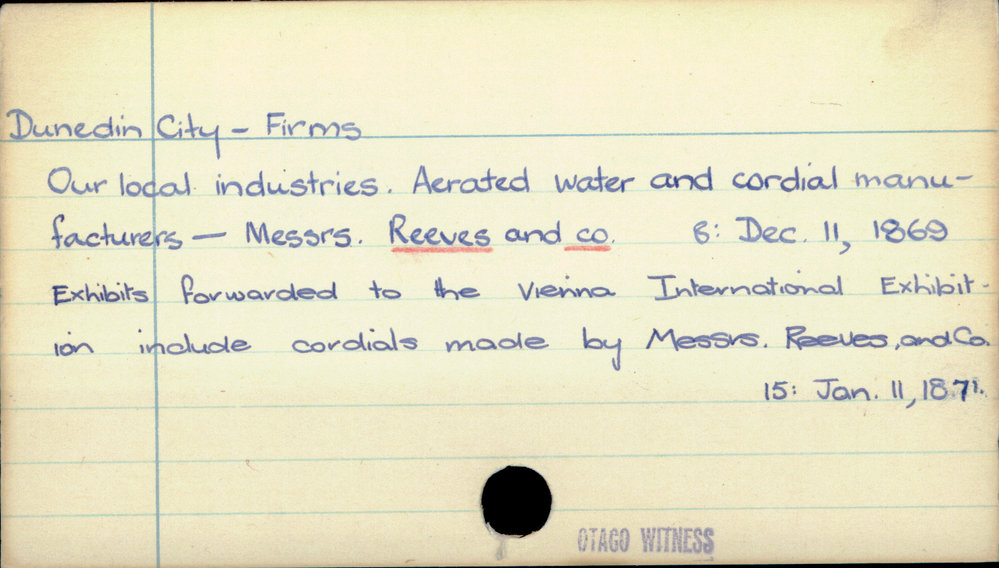 Dunedin City - Firms
Our local industries. Aerated water and cordial manu-
facturers — Messrs. Reeves and co. 8: Dec. 11, 1869
Exhibits forwarded to the Vienna International Exhibit-
ion include cordials made by Messrs. Reeves, and Co.
15: Jan. 11, 1871.
OTAGO WITNESS